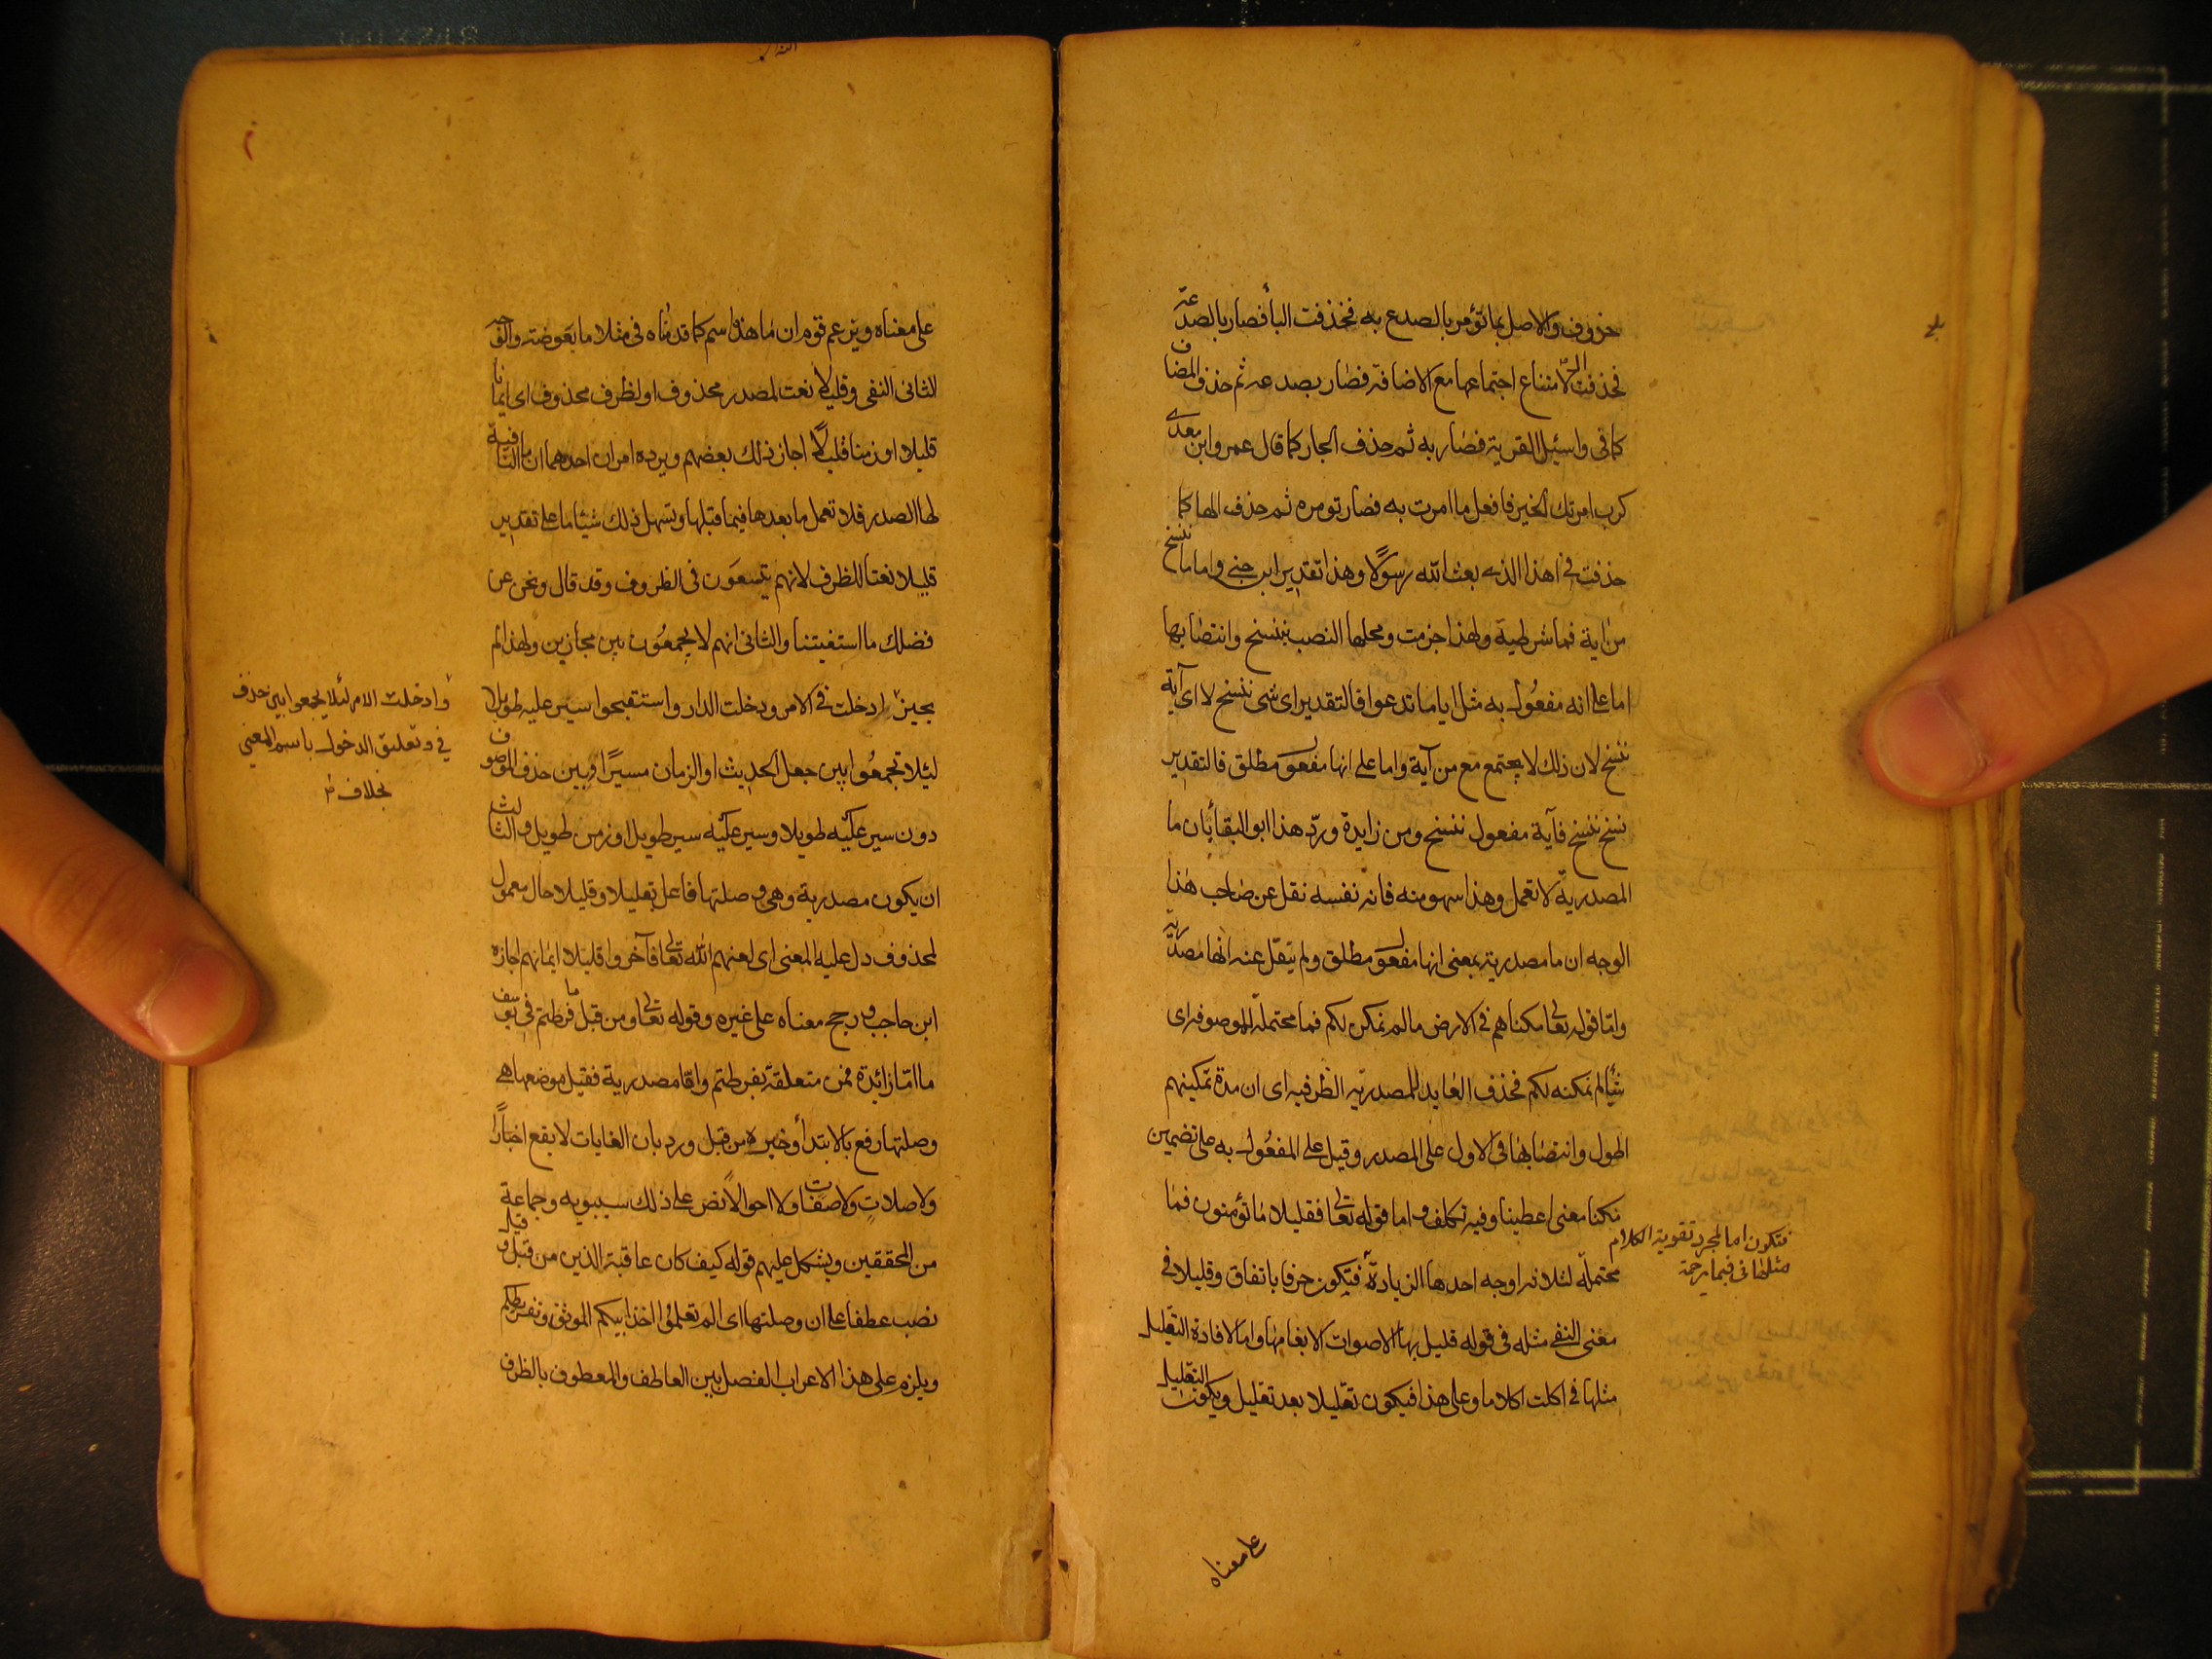 حروف والاصل بما تؤمر بالصدع به فحذفت البأ فصار بالصدعه
فحذفت ال لامتناع اجتماعها مع الاضافة فصار بصدعه ثم حذف المضاف
كما فى واسئل القرية فصار به ثم حذف الجار كما قال عمرو ابن معدى
كرب امرتك الخير فافعل ما امرت به فصار تومره ثم حذف الها كما
حذفت فى اهذا الذى بعث الله رسولا وهذا تقدير ابن جنى واما ما ننسخ
من اية فما شرطية ولهذا جزمت ومحلها النصب بننسخ وانتصابها
اما على انه مفعول به مثل ايا ما تدعوا فالتقدير اى شى ننسخ لا اى آية
ننسخ لان ذلك لا يجتمع مع من آية واما على انها مفعول مطلق فالتقدير اى
نسخ ننسخ فآية مفعول ننسخ ومن زايدة ورد هذا ابو البقأ بان ما
المصدرية لا تعمل وهذا سهو منه فانه نفسه نقل عن صاحب هذا
الوجه ان ما مصدرية بمعنى انها مفعول مطلق ولم ينقل عنه انها مصدرية
واما قوله تعالى مكناهم فى الارض ما لم نمكن لكم فما محتملة للموصوفه اى
شيأ لم نمكنه لكم فحذف العايد للمصدريه الظرفيه اى ان مدة تمكينهم
اطول وانتصابها فى الاول على المصدر وقيل على المفعول به على تضمين
مكنا معنى اعطينا وفيه تكلف واما قوله تعالى فقليلا ما تؤمنون فما
محتملة لثلاثه اوجه احدها الزيادة فتكون حرفا باتفاق وقليلا فى
فتكون اما لمجرد تقوية الكلام
مثلها فى فبما رحمة
معنى النفى مثله فى قوله قليل بها الاصوات الا بغامها واما لافادة التقليل
مثلها فى اكلت اكلا ما وعلى هذا فيكون تقليلا بعد تقليل ويكون التقليل
على معناه
على معناه ويزعم قوم ان ما هذه اسم كما قدمناه فى مثلا ما بعوضة والوجه
الثانى النفى وقليلا نعت لمصدر محذوف او لظرف محذوف اى ايمانا
قليلا او زمنا قليلا اجاز ذلك بعضهم ويرده امران احدهما ان ما النافية
لها الصدر فلا تعمل ما بعدها فيما قبلها وتسهل ذلك شيئا ما على تقدير
قليلا نعتا للظرف لانهم يتسعون فى الظروف وقد قال ونحن عن
فضلك ما استغنيتنا والثانى انهم لا يجمعون بين مجازين ولهذا لم
يجيزوا دخلت فى الامر ودخلت الدار واستقبحوا سير عليه طويلا
وادخلت الامر لئلا يجمعوا بين حذف
فى وتعليق الدخول باسم المعنى
بخلاف
لئلا تجمعوا بين جعل الحديث او الزمان مسيرا وبين حذف الموصوف
دون سير عليه طويلا وسير عليه سير طويل او زمن طويل والثالث
ان يكون مصدرية وهى وصلتها فاعل بقليلا وقليلا حال معمول
لمحذوف دل عليه المعنى اى لعنهم الله تعالى فآخروا قليلا ايمانهم اجازه
ابن حاجب ورجح معناه على غيره وقوله تعالى ومن قبل ما فرطتم فى يوسف
ما اما زائدة فمن متعلقة بفرطتم واما مصدرية فقيل موضعها هى
وصلتها رفع بالابتدأ وخبره من قبل ورد بان الغايات لا يقع اخبارا
ولا صلات ولا صفات ولا احوالا نص على ذلك سيبويه وجماعة
من المحققين ويشكل عليهم قوله كيف كان عاقبة الذين من قبل وقيل
نصب عطفا على ان وصلتها اى الم تعلموا اخذ ابيكم الموثق وتفريطكم
ويلزم على هذا الاعراب الفصل بين العاطف والمعطوف بالظرف